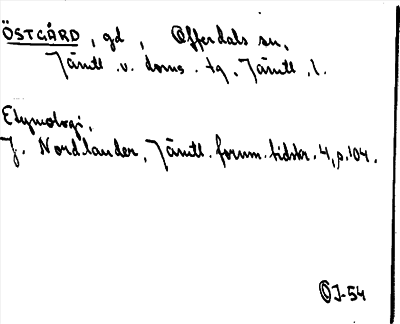 ÖSTGÅRD, gd, Offerdals sn,
Jämtl. v. doms. tg, Jämtl. l.
Etymologi,
J. Nordlander, Jämtl. fornm. tidskr. 4, p. 104.
ÖJ-54